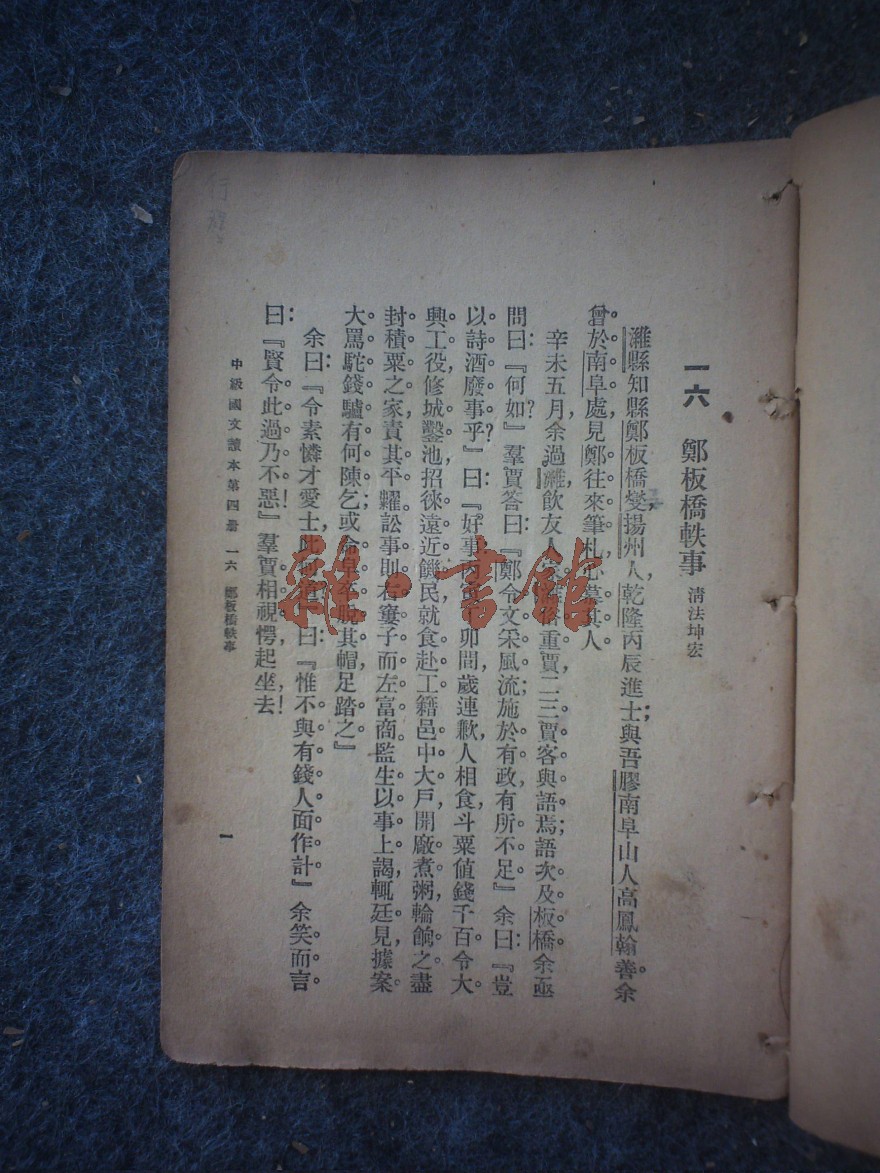 一六　鄭板橋軼事　清法坤宏
濰縣知縣鄭板橋燮，揚州人，乾隆丙辰進士；與吾膠南阜山人高鳳翰善。余
曾於南阜處，見鄭往來筆札，心慕其人。
辛未五月，余過濰，飲友人重賈，二三賈客與語焉；語次及板橋。余亟
問曰：『何如？』羣賈答曰：『鄭令文采風流；施於有政，有所不足。』余曰：『豈
以詩酒廢事乎？』曰：『好事。卯間，歲連歉，人相食，斗粟值錢千百。令大
興工役，修城鑿池，招徠遠近饑民就食赴工。籍邑中大戶，開廠煮粥，輪餉之。盡
封積粟之家，責其平糶。訟事則右窶子而左富商。監生以事上謁，輒廷見，據案
大罵。駝錢驢有何陳乞；或命皁卒脫其帽，足踏之。』
余曰：『令素憐才愛士，此何曰：『惟不與有錢人面作計。』余笑而言
曰：『賢令此過乃不惡！』羣賈相視愕，起坐去！
中級國文讀本第四册　一六　鄭板橋軼事
一
雜·書館